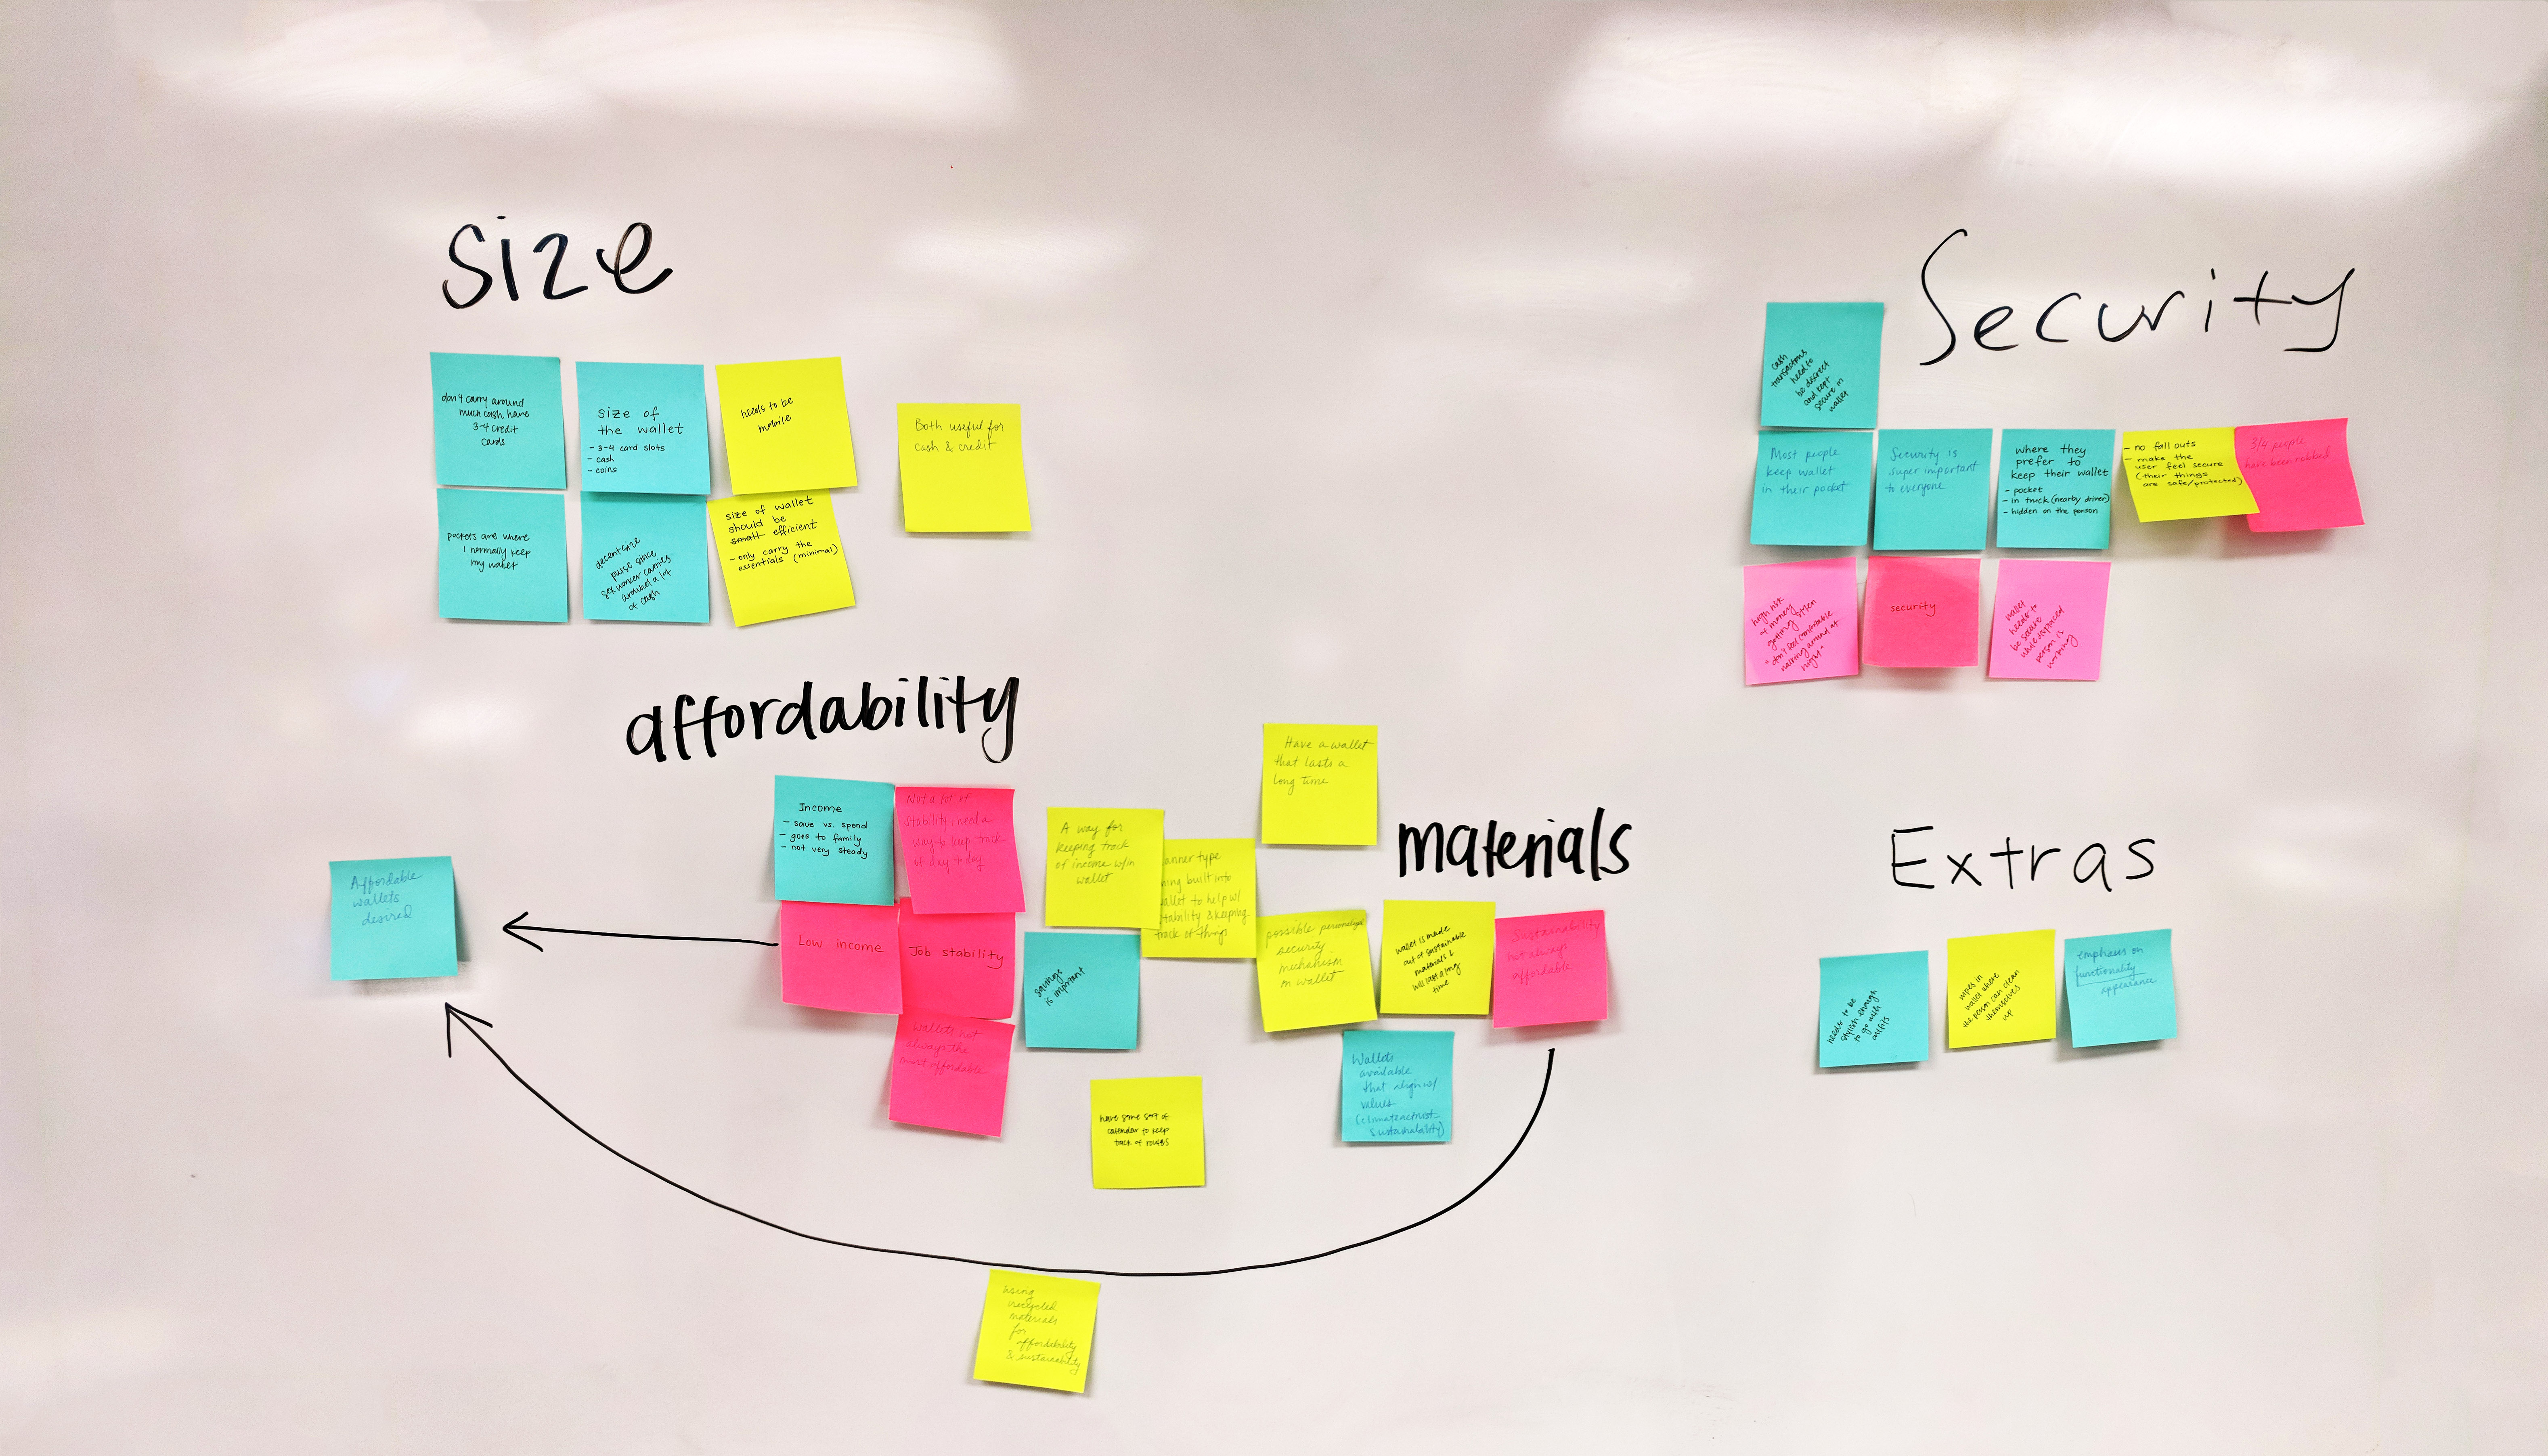 size
don't carry around
much cash, have
3-4 credit
cards
size of
the wallet
- 3-4 card slots
- cash
- coins
needs to be
mobile
Both useful for
cash & credit
pockets are where
I normally keep
my wallet
decent size
purse since
sex worker carries
around a lot
of cash
size of wallet
should be
small efficient
- only carry the
essentials (minimal)
Security
cash
transactions
need to
be discreet
and kept
secure in
wallet
Most people
keep wallet
in their pocket
Security is
super important
to everyone
where they
prefer to
keep their wallet
- pocket
- in truck (nearby driver)
- hidden on the person
- no fall outs
- make the
user feel secure
(their things
are safe/protected)
3/4 people
have been robbed
high risk
of money
getting stolen
"don't feel comfortable
walking around at
night"
security
wallet
needs to
be secure
while
person is
working
affordability
Income
- save vs. spend
- goes to family
- not very steady
Not a lot of
stability need a
way to keep track
of day to day
Low income
Job stability
Wallets not
always the
most affordable
Affordable
wallets
desired
A way for
keeping track
of income w/in
wallet
anner type
hing built into
allet to help w/
tability & keeping
track of things
savings
is important
have some sort of
calendar to keep
track of
materials
Have a wallet
that lasts a
long time
possible personalized
security
mechanism
in wallet
wallet is made
out of sustainable
materials &
will last a long
time
Sustainability
not always
affordable
Wallets
available
that align w/
values
sustainability)
using
recycled
materials
for
affordability
& sustainability
Extras
needs to be
stylish enough
to go with
outfits
wipes in
wallet where
the person can clean
themselves
up
emphasis on
functionality
appearance